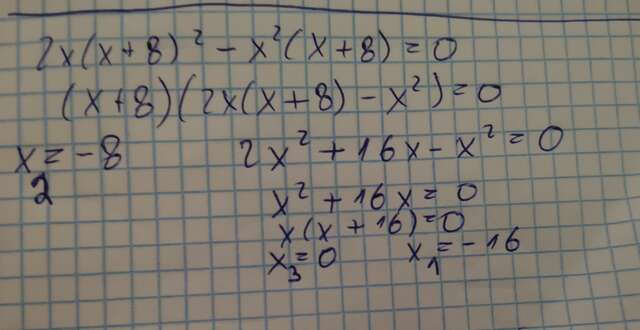 2x(x+8)² - x²(x+8)=0
(x+8)(2x(x+8)-x²)=0
x₂=-8 2x²+16x-x²=0
x²+16x=0
x(x+16)=0
x₃=0 x₁=-16